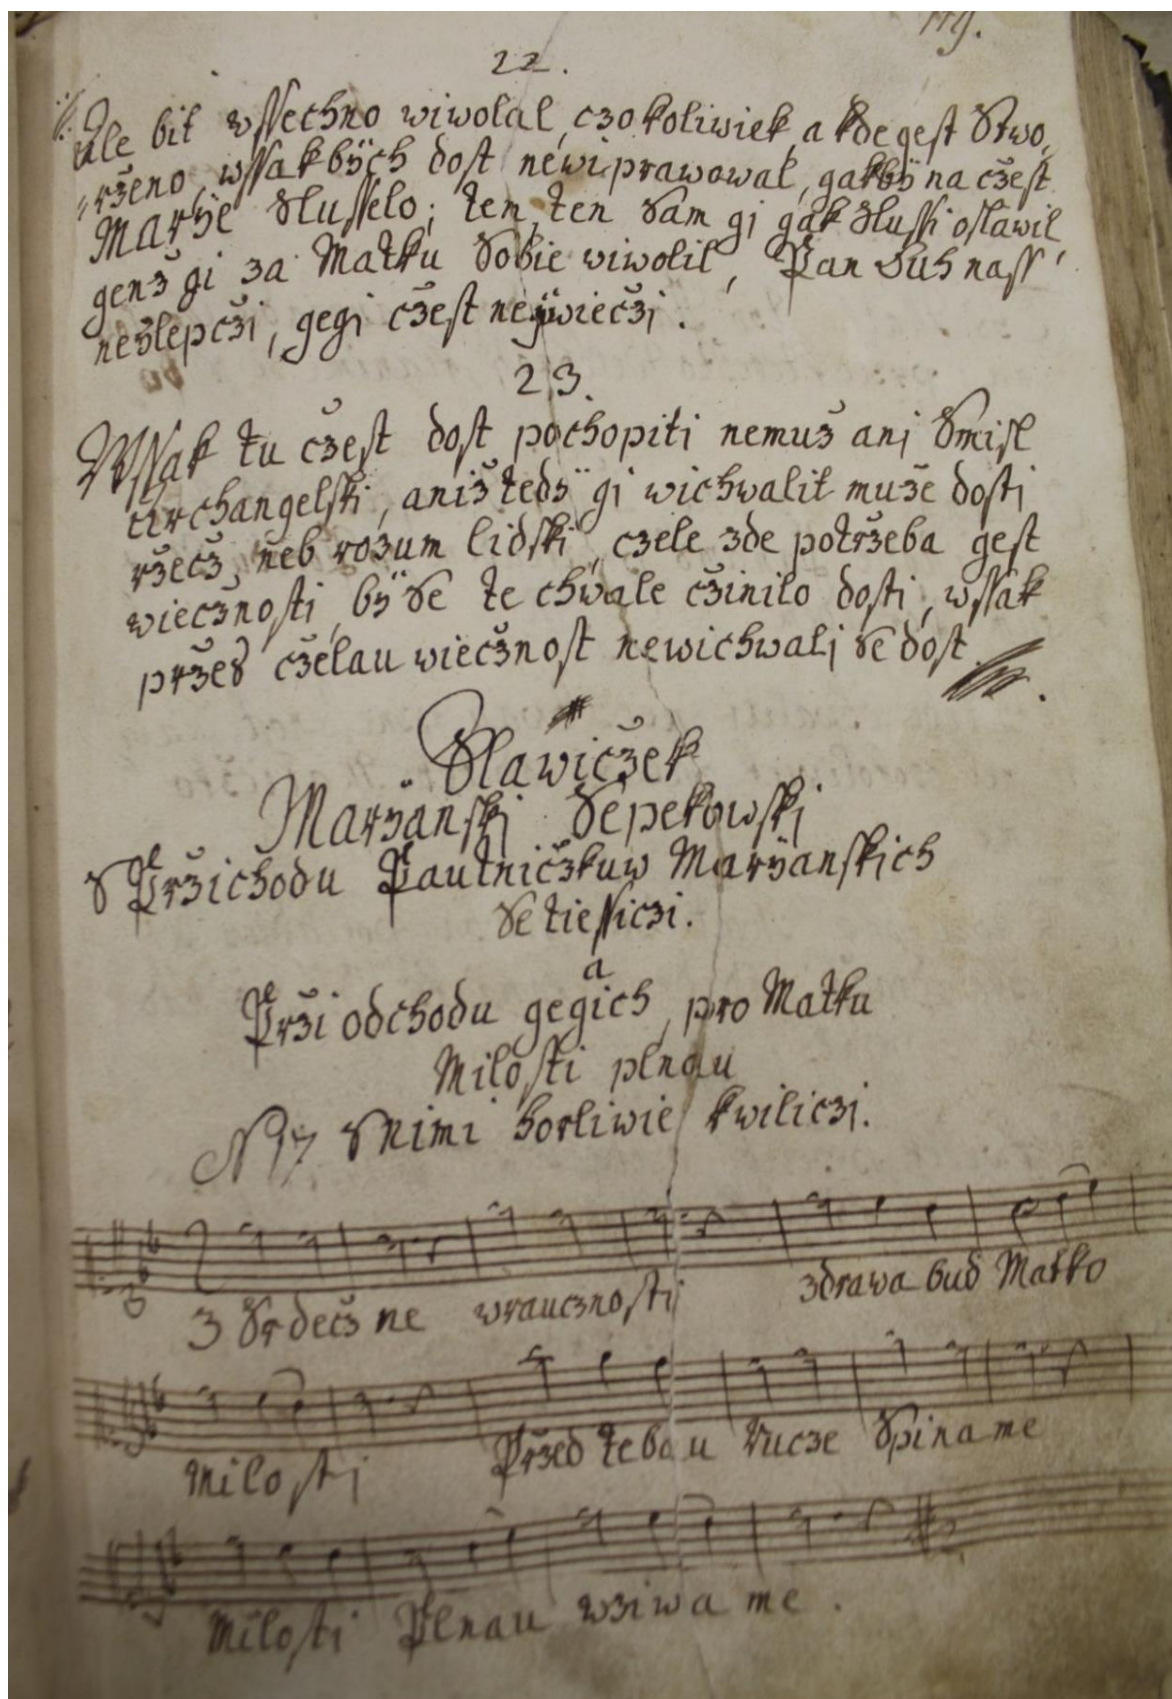 119.
22.
Ale bit wssechno wiwolal, czokoliwiek, a kde gest Stwo,
„rženo, wssak bÿch dost newiprawowal, gakbÿ na cžest
Marÿe Slusselo; tem, ten Sam gi gak Slussi oslawil,
genž gi za Matku Sobie wiwolil, Pan Buh nass
neslepcži, gegi cžest neÿwiecži.
23.
Wssak tu cžest dost pochopiti nemuž ani Smisl
Archangelski, aniž tedÿ gi wichwalit muže dosti
ržecž, neb rozum lidski, czele zde potržeba gest
wiecžnosti, bÿ Se te chwale cžinilo dosti, wssak
pržes cželau wiecžnost newichwali Se dost.
Slawicžek
Marÿanski Sepekowski
S Pržichodu Pautnicžkuw Marÿanskich
Se tiessiczi.
a
Prži odchodu gegich, pro Matku
Milosti plnau
N 17 Snimi horliwie kwiliczi.
Z Srdecžne wraucznosti zdrawa bud Matko
Milosti Pržed tebau rucze Spiname
Milosti Plnau wziwame.